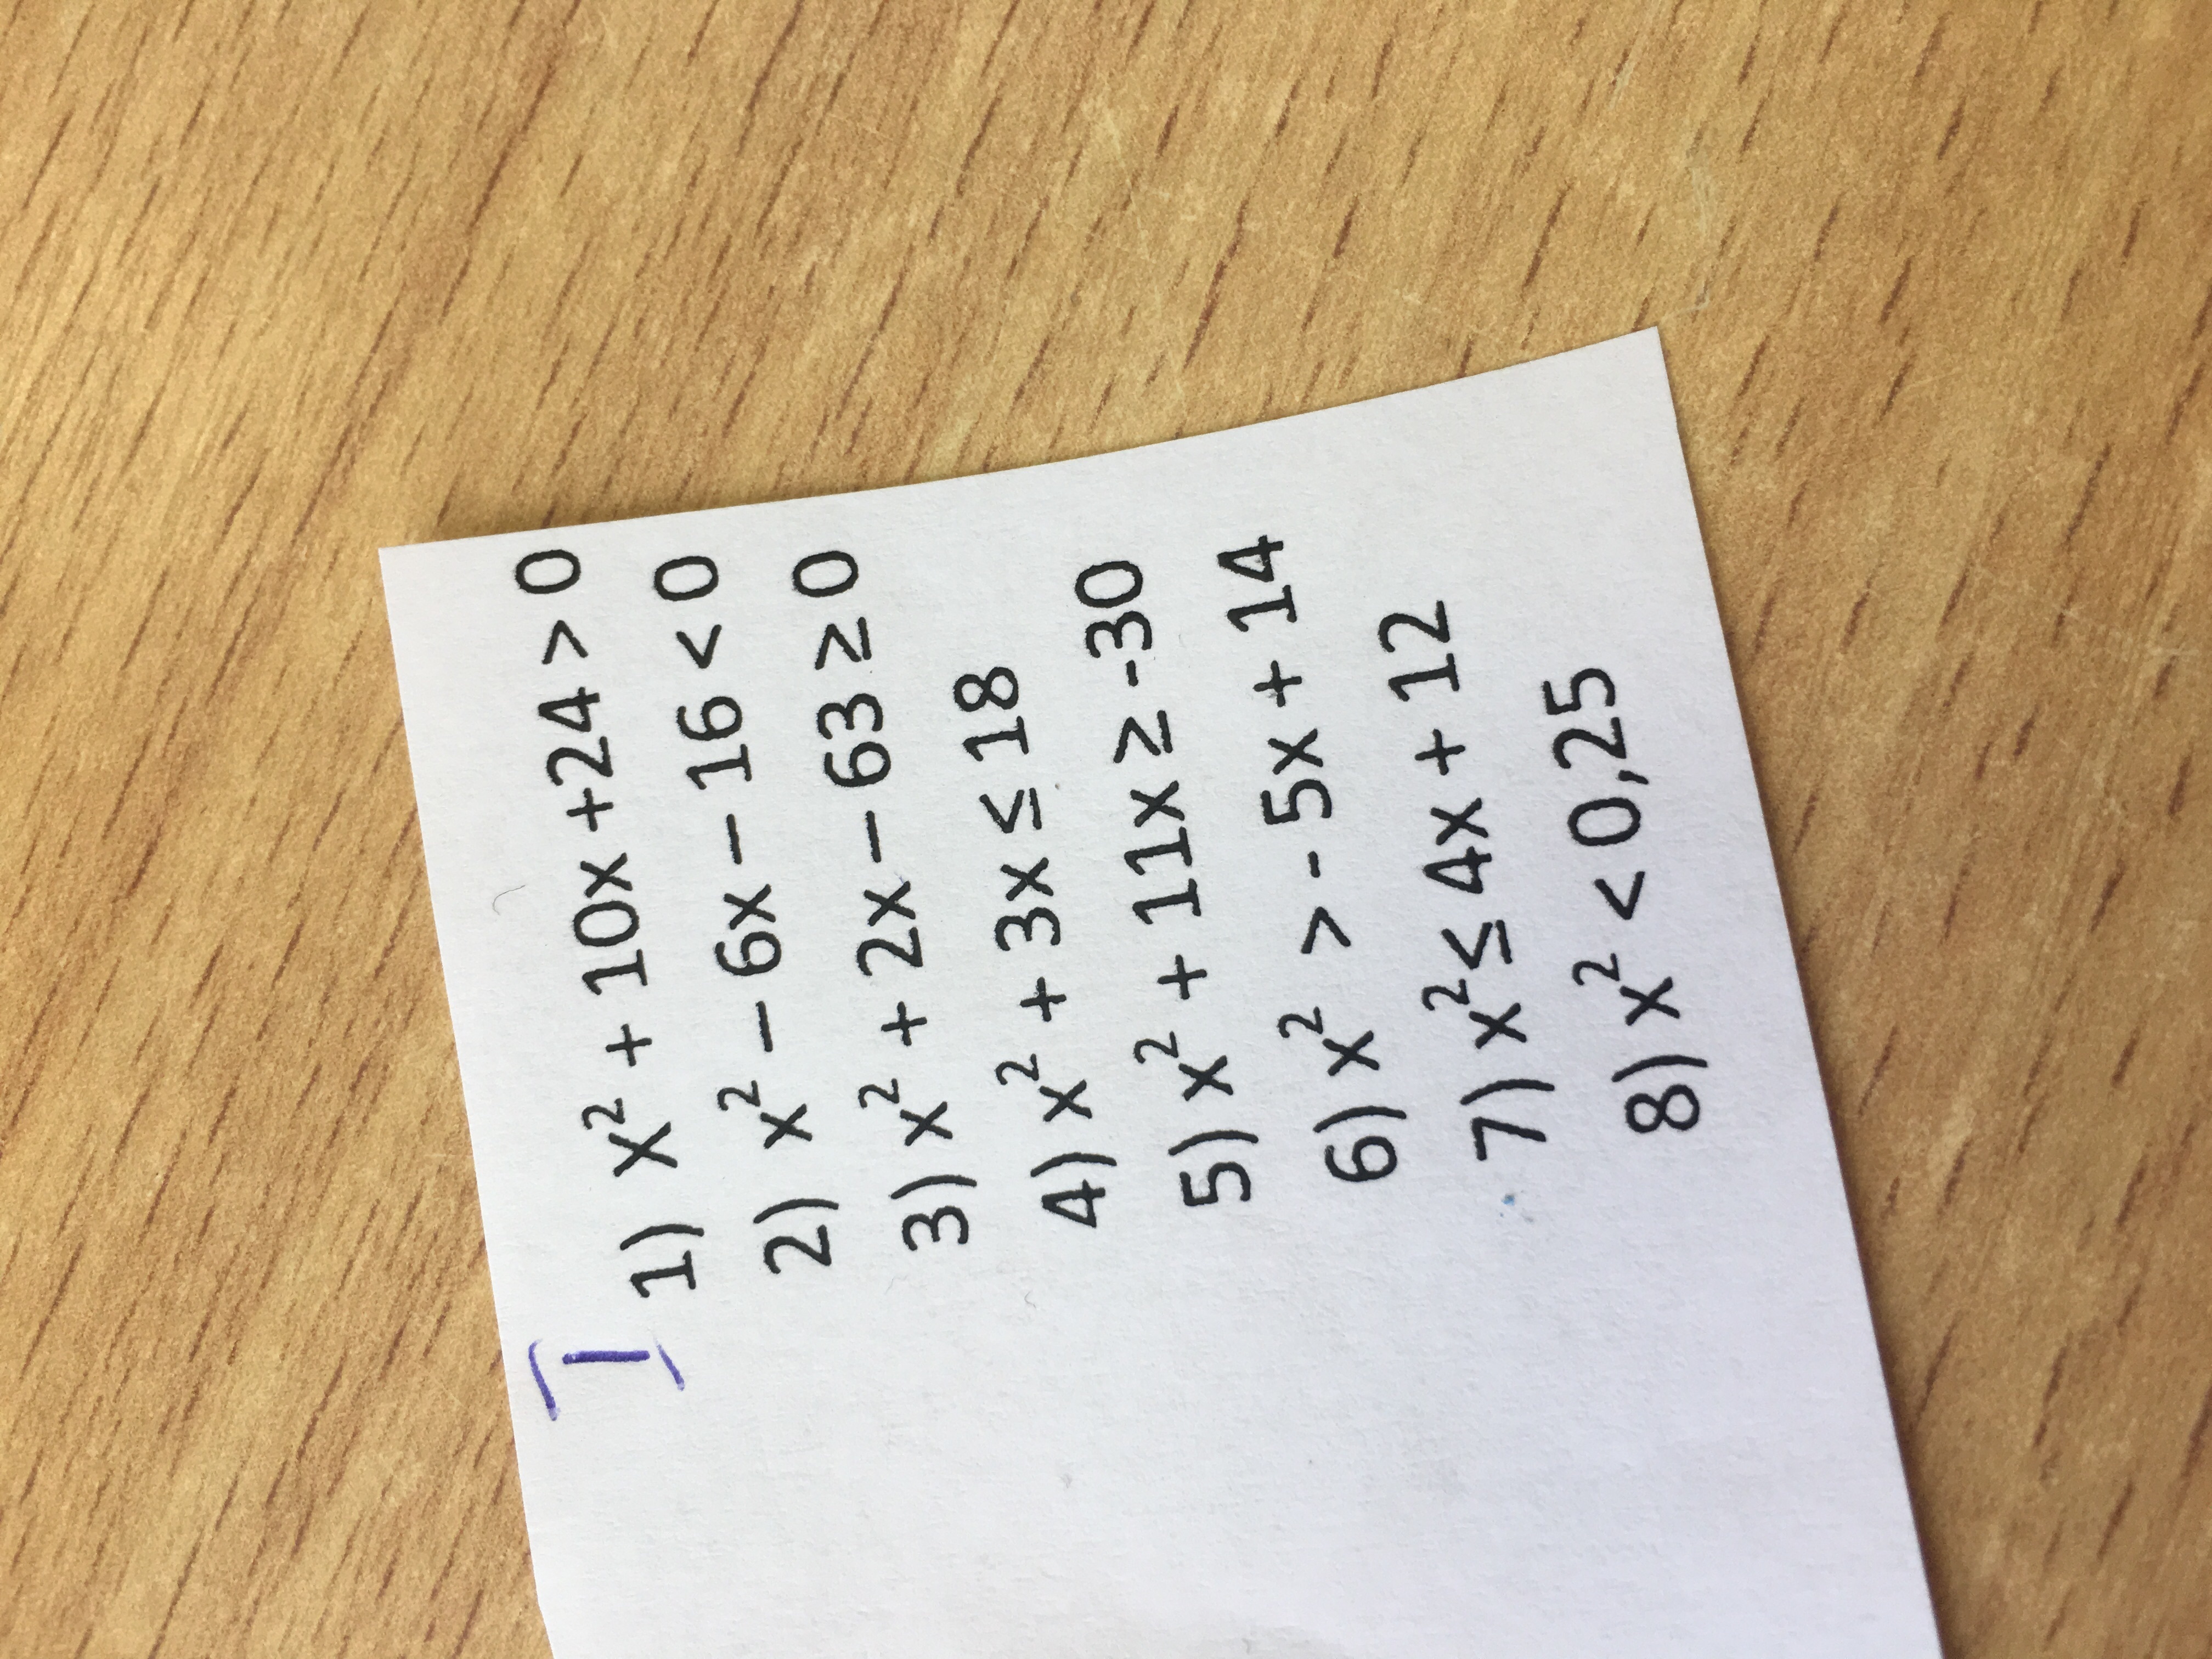 I
1) x² + 10x +24 > 0
2) x² – 6x – 16 < 0
3) x² + 2x – 63 ≥ 0
4) x² + 3x ≤ 18
5) x² + 11x ≥ -30
6) x² > - 5x + 14
7) x² ≤ 4x + 12
8) x² < 0,25